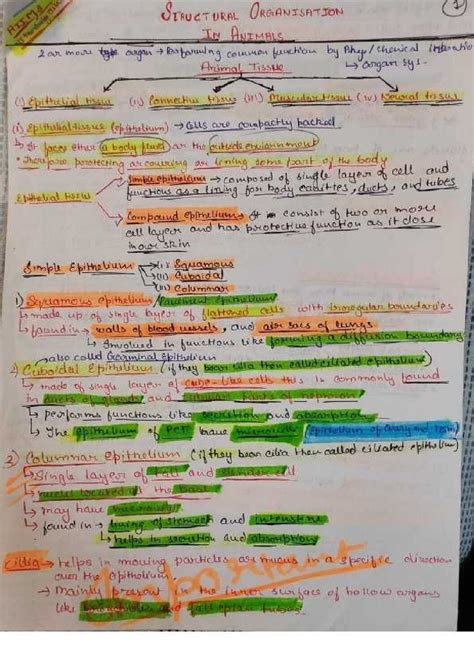 STRUCTURAL ORGANISATION
IN ANIMALS
2 or more organ → Performing common function by Phy/chemical interaction
→ organ sys.
Animal Tissue
(i) Epithelial tissue (ii) Connective tissue (iii) Muscular tissue (iv) Neural tissue
(i) Epithelial tissues (epithelium) → Cells are compactly packed
↳ It faces either a body fluid or the outside environment
* Therefore protecting or covering or lining some part of the body
Simple epithelium → composed of single layer of cell and
functions as a lining for body cavities, ducts, and tubes
Epithelial tissue
Compound epithelium → It consist of two or more
cell layer and has protective function as it does
in our skin
Simple Epithelium → (i) Squamous
(ii) Cuboidal
(iii) Columnar
1) Squamous epithelium/Pavement Epithelium
↳ made up of single layer of flattened cells with irregular boundaries
↳ found in → walls of blood vessels, and air sacs of lungs
↳ Involved in functions like forming a diffusion boundary
also called Germinal epithelium
2) Cuboidal Epithelium (if they bear cilia then called ciliated epithelium)
↳ made of single layer of cube-like cells this is commonly found
in ducts of glands and tubular parts of nephron
↳ performs functions like secretion and absorption
↳ The epithelium of PCT have microvilli
3) Columnar epithelium (if they bear cilia then called ciliated epithelium)
↳ Single layer of tall and slender cell
↳ nuclei located at the base
↳ may have microvilli
↳ found in → lining of stomach and intestine
↳ helps in secretion and absorption
Cilia → helps in moving particles or mucus in a specific direction
over the epithelium.
→ Mainly present in the inner surface of hollow organs
like bronchioles and fallopian tubes
Important